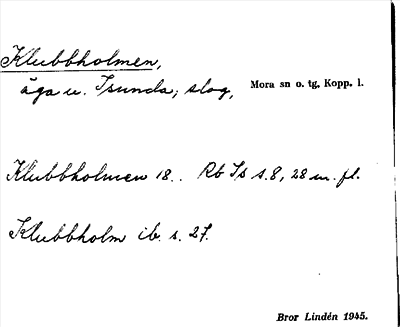 Klubbholmen,
äga u. Isunda; slog, Mora sn o. tg, Kopp. l.
Klubbholmen 18.. Rb Is s. 8, 28 m. fl.
Klubbholm ib. s. 27.
Bror Lindén 1945.